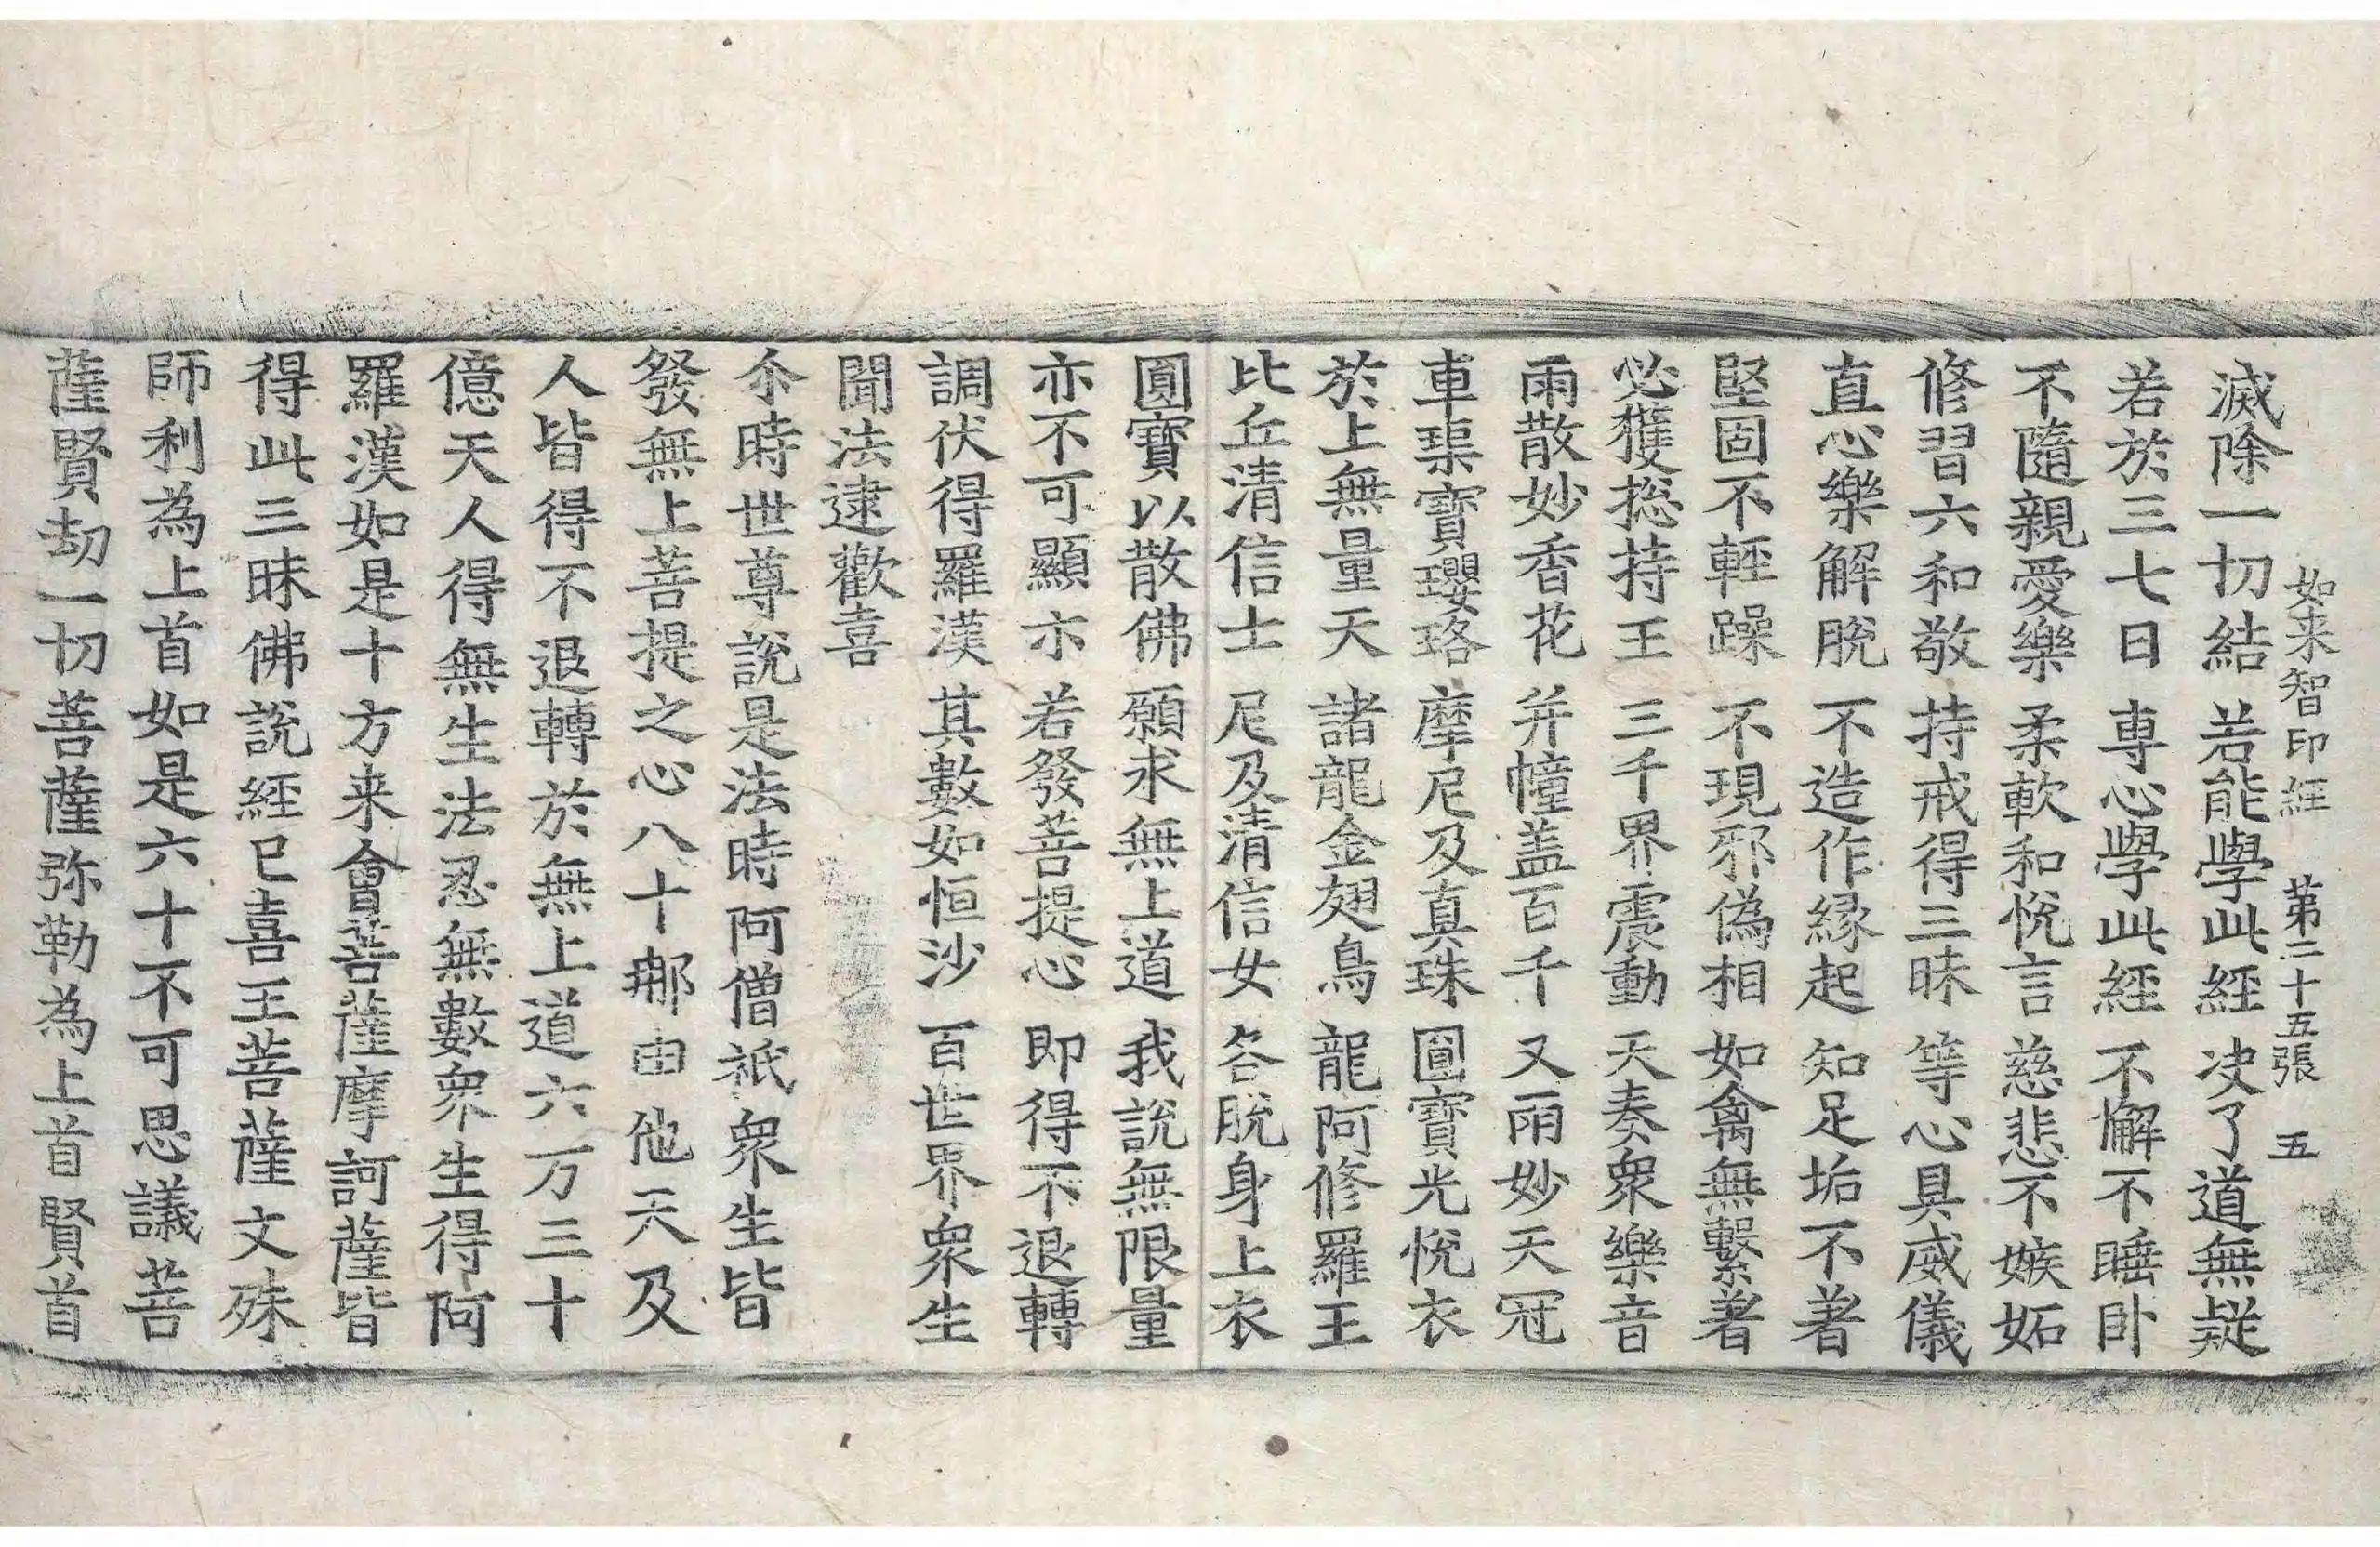 如来智印經 第二十五張 五
滅除一切結 若能學此經 决了道無疑
若於三七日 専心學此經 不懈不睡卧
不隨親愛樂 柔軟和悅言 慈悲不嫉妬
修習六和敬 持戒得三昧 等心具威儀
直心樂解脫 不造作縁起 知足垢不著
堅固不輕躁 不現邪偽相 如禽無繫著
必獲捴持王 三千界震動 天奏衆樂音
雨散妙香花 并幢盖百千 又雨妙天冠
車璖寶瓔珞 摩尼及真珠 圓寶光悅衣
於上無量天 諸龍金翅鳥 龍阿修羅王
比丘清信士 尼及清信女 各脫身上衣
圓寶以散佛 願求無上道 我說無限量
亦不可顯示 若發菩提心 即得不退轉
調伏得羅漢 其數如恒沙 百世界衆生
聞法逮歡喜
尒時世尊說是法時阿僧祇衆生皆
發無上菩提之心八十𨚗由他天及
人皆得不退轉於無上道六万三十
億天人得無生法忍無數衆生得阿
羅漢如是十方来會菩薩摩訶薩皆
得此三昧佛說經已喜王菩薩文殊
師利為上首如是六十不可思議菩
薩賢劫一切菩薩弥勒為上首賢首